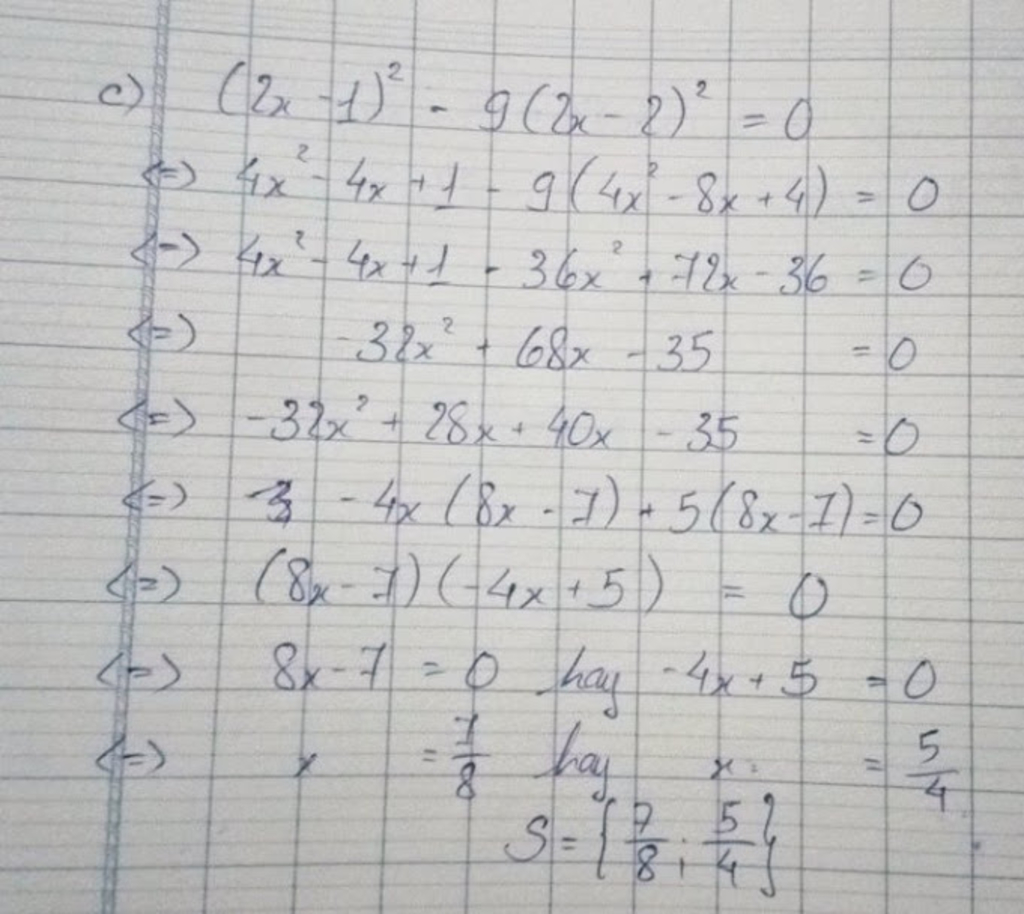 c) (2x - 1)² - 9(2x - 2)² = 0
<=> 4x² - 4x + 1 - 9(4x² - 8x + 4) = 0
<=> 4x² - 4x + 1 - 36x² + 72x - 36 = 0
<=> -32x² + 68x - 35 = 0
<=> -32x² + 28x + 40x - 35 = 0
<=> - 4x (8x - 7) + 5(8x - 7) = 0
<=> (8x - 7)(-4x + 5) = 0
<=> 8x - 7 = 0 hay -4x + 5 = 0
<=> x = 7/8 hay x = 5/4
S = {7/8 ; 5/4}